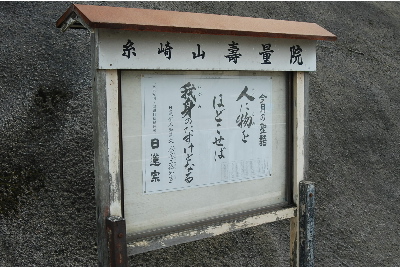 糸崎山壽量院
今月の聖語
人に物を
ほどこせば
我身の
たすけとなる
日蓮宗